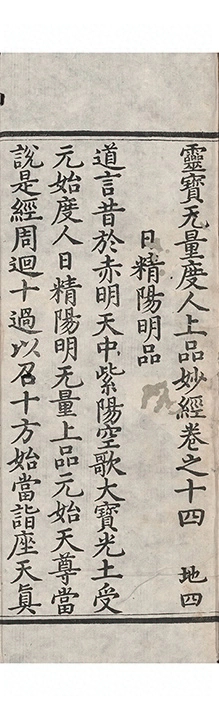 靈寶无量度人上品妙經卷之十四 地四
日精陽明品
道言昔於赤明天中紫陽空歌大寶光土受
元始度人日精陽明无量上品元始天尊當
說是經周迴十過以召十方始當詣座天真